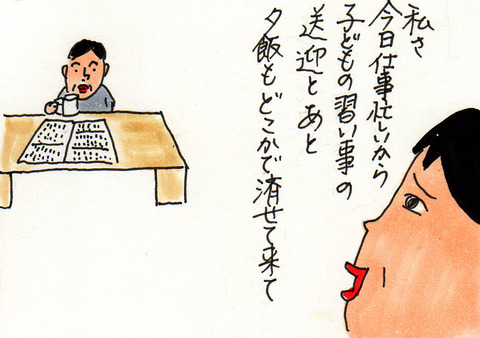 私さ
今日仕事忙しいから
子どもの習い事の
送迎とあと
夕飯もどこかで済せて来て